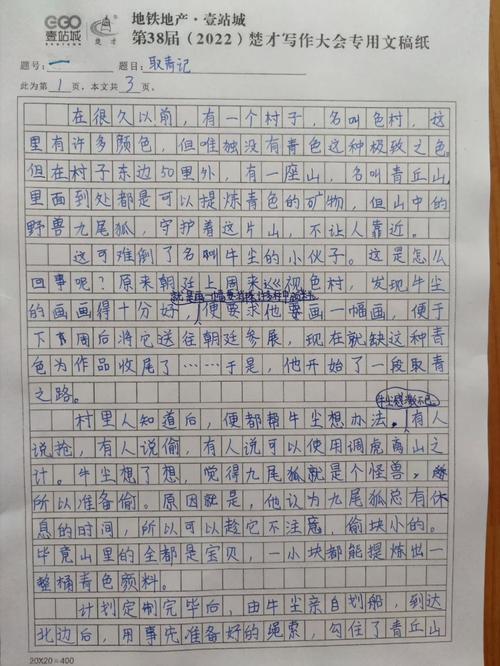 EGO
壹站城
楚才
地铁地产·壹站城
第38届（2022）楚才写作大会专用文稿纸
题号：一 题目：取青记
此为第1页，本文共3页。
在很久以前，有一个村子，名叫色村，这
里有许多颜色，但唯独没有青色这种极致之色。
但在村子东边50里外，有一座山，名叫青丘山，
里面到处都是可以提炼青色的矿物，但山中的
野兽九尾狐，守护着这片山，不让人靠近。
这可难倒了名叫牛尘的小伙子。这是怎么
回事呢？原来朝廷上周来巡视色村，发现牛尘
的画画得十分好，便要求他要画一幅画，便于
下周后将它送往朝廷参展，现在就缺这种青
色为作品收尾了……于是，他开始了一段取青
之路。
村里人知道后，便都帮牛尘想办法，有人
说抢，有人说偷，有人说可以使用调虎离山之
计。牛尘想了想，觉得九尾狐就是个怪兽，
所以准备偷。原因就是，他认为九尾狐总有休
息的时间，所以可以趁它不注意，偷块小的。
毕竟山里的全都是宝贝，一小块都能提炼出一
整桶青色颜料。
计划定制完毕后，由牛尘亲自划船，到达
北边后，用事先准备好的绳索，勾住了青丘山
20X20=400